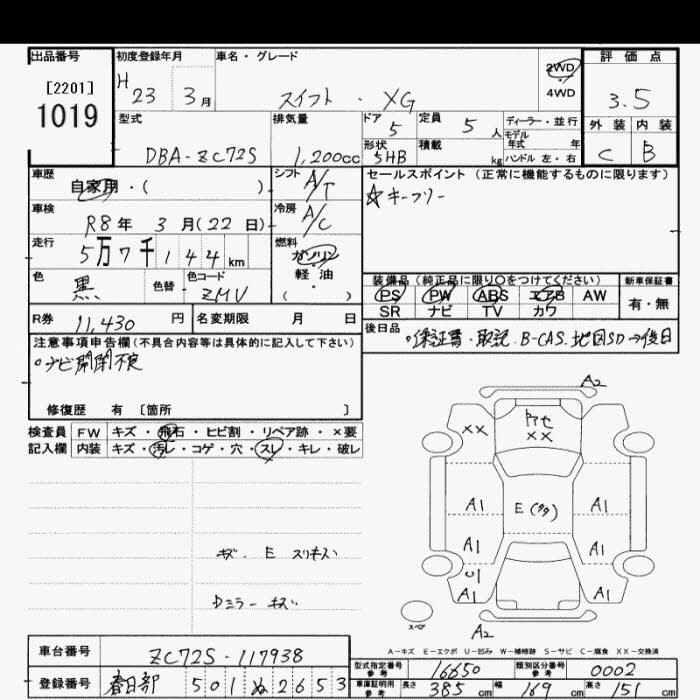 出品番号
[2201]
1019
初度登録年月
H 23 3月
車名・グレード
スイフト・XG
2WD
4WD
評価点
3.5
外装 内装
C B
型式
DBA-ZC72S
排気量
1,200cc
ドア
5
定員
5人
ディーラー・並行
モデル
年式 年
ハンドル 左・右
形状
5HB
積載
kg
車歴
自家用・( )
シフト
A/T
車検
R8年 3月(22日)
冷房
A/C
走行
5万7千144km
燃料
ガソリン
軽・油
( )
色
黒
色替
色コード
ZMV
セールスポイント(正常に機能するものに限ります)
☆キーフリー
装備品(純正品に限り○をつけてください)
PS PW ABS エアB AW
SR ナビ TV カワ
新車保証書
有・無
R券
11,430円
名変期限 月 日
後日品
。保証書・取説、B-CAS、地図SD→後日
注意事項申告欄(不具合内容等は具体的に記入して下さい)
。ナビ開閉不良
修復歴 有 〔箇所 〕
検査員
記入欄
FW キズ・飛石・ヒビ割・リペア跡・×要
内装 キズ・汚レ・コゲ・穴・スレ・キレ・破レ
キズ・E スリキズ
Dミラー キズ
A2
××
××
A1
E
A1
A1
A1
A1
A1
A2
スペア
A-キズ E-エクボ U-凹み W-補修跡 S-サビ C-腐食 XX-交換済
車台番号
ZC72S-117938
登録番号
春日部 501 ぬ 2653
型式指定番号
参考
16650
類別区分番号
参考
0002
車庫証明用
参考
長さ 385cm 幅 169cm 高さ 151cm